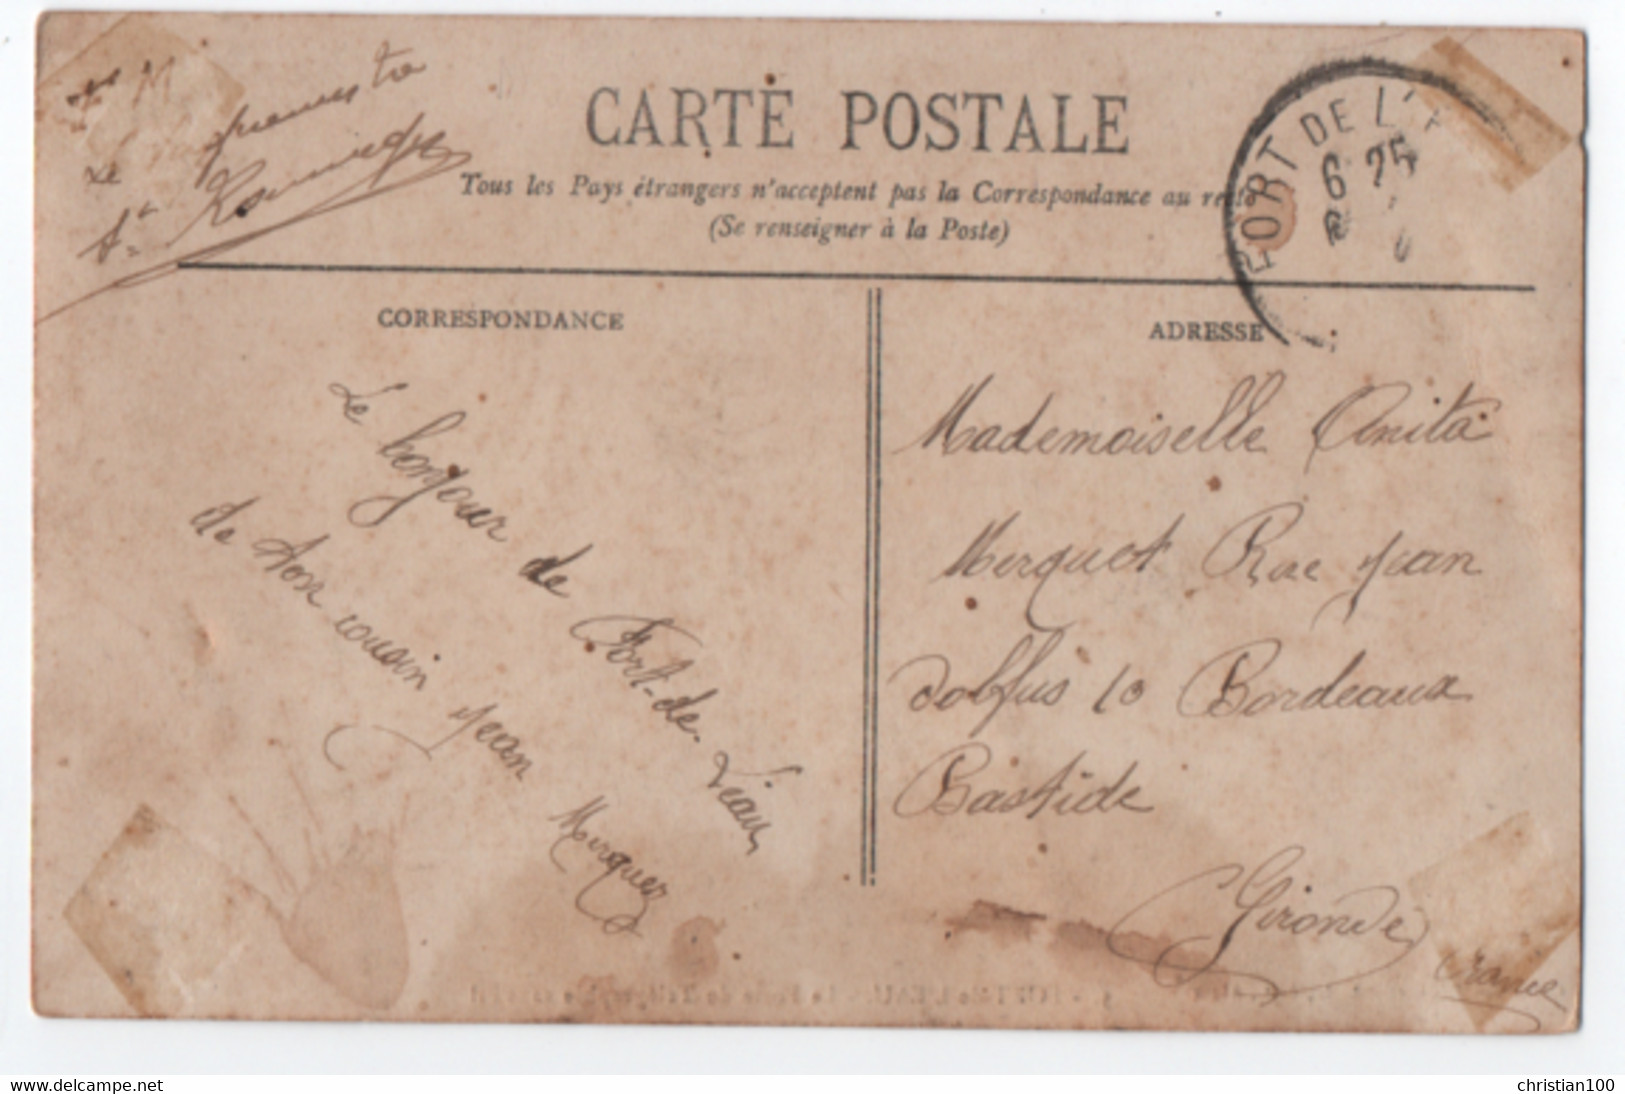 F M
Le
CARTE POSTALE
Tous les Pays étrangers n'acceptent pas la Correspondance au recto
(Se renseigner à la Poste)
FORT DE L'
6 25
CORRESPONDANCE
ADRESSE
Le bonjour de Fort-de-L'eau
de ton cousin Jean Merquez
Mademoiselle Anita
Merquet Rue Jean
Dolfus 10 Bordeaux
Bastide
Gironde
France
www.delcampe.net
christian100